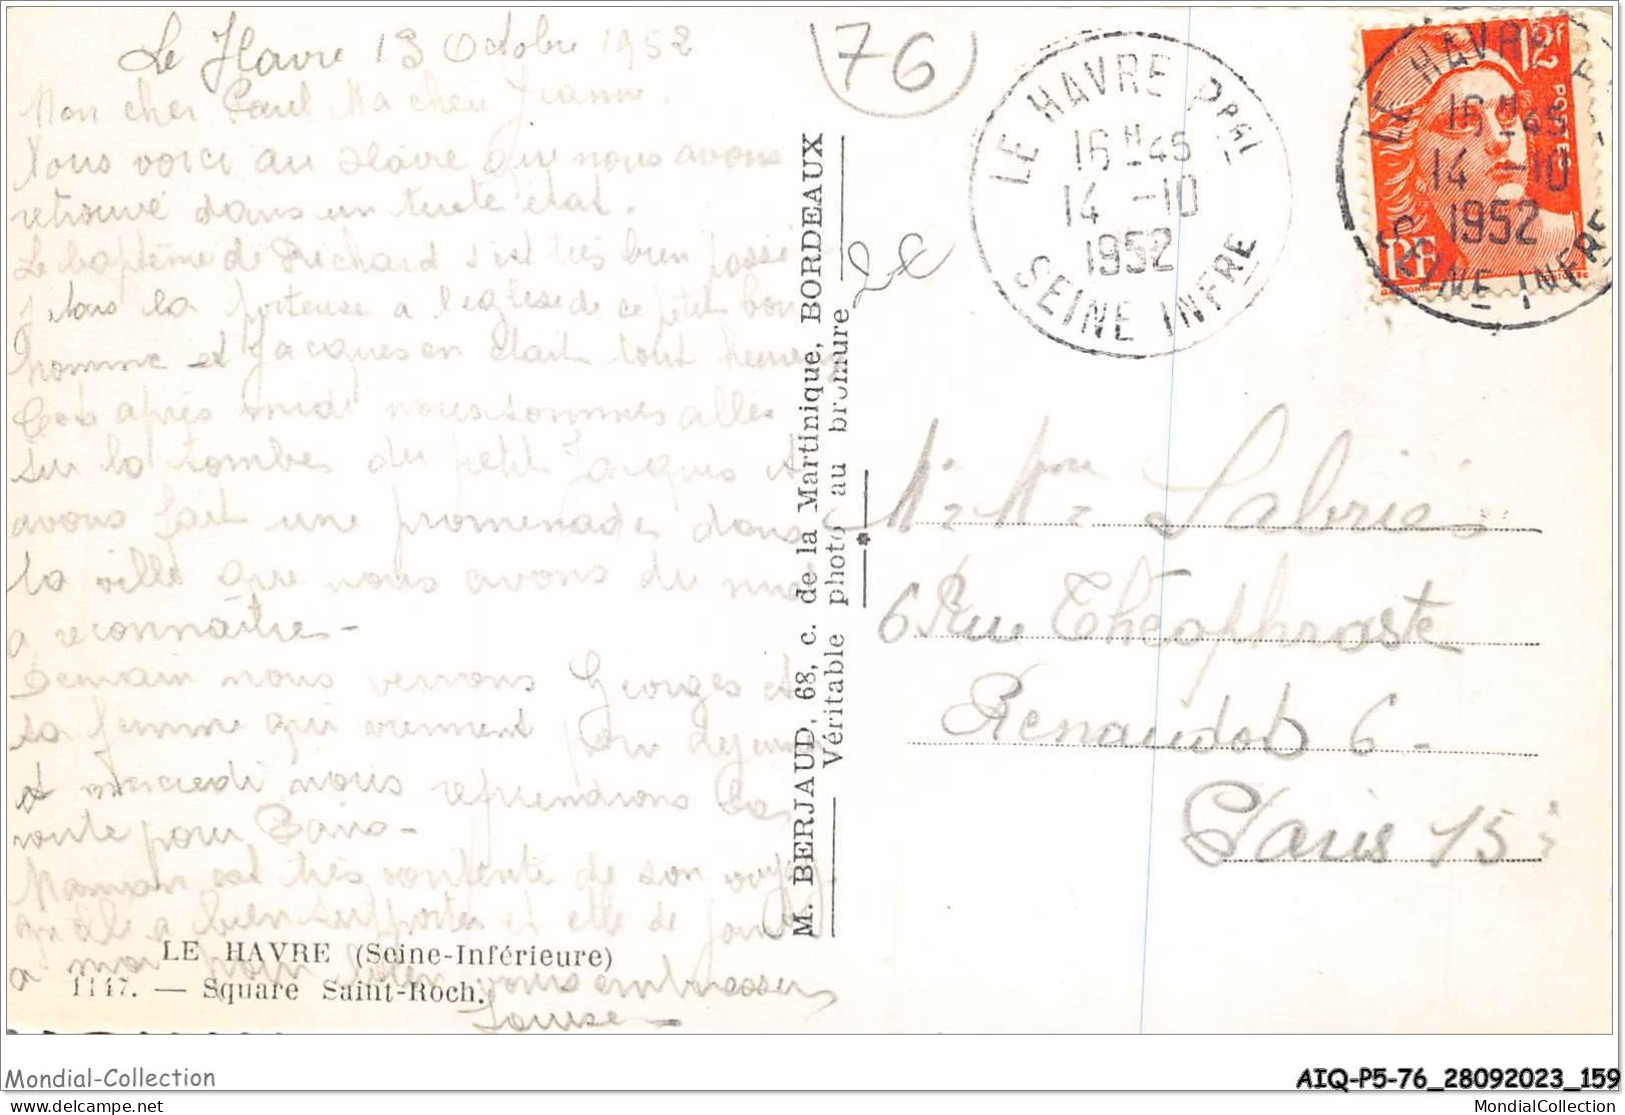 Le Havre 13 Octobre 1952
Mon cher Paul Ma chère Jeanne,
Nous voici au Hâvre que nous avons
retrouvé dans un triste état.
Le baptême de Richard s'est très bien passé
j'étais la porteuse à l'église de ce petit bon
homme et Jacques en était tout heureux
Cet après midi nous sommes allés
sur la tombe du petit Jacques et
avons fait une promenade dans
la ville que nous avons du mal
a reconnaître -
Demain nous verrons Georges et
sa femme qui viennent pour dejeuner
et mercredi nous reprendrons la
route pour Paris -
Maman est très contente de son voyage
qu'elle a bien supporté et elle se joint
a moi pour bien vous embrasser
Louise
LE HAVRE (Seine-Inférieure)
1147. — Square Saint-Roch.
M. BERJAUD, 68, c. de la Martinique, BORDEAUX
Véritable photo au bromure
76
LE HAVRE Ppal
16 H 45
14 -10
1952
SEINE INFRE
12f
POSTES
RF
LE HAVRE
16 H 45
14 -10
1952
SEINE INFRE
Mr Mme Labrie
6 Rue Théophraste
Renaudot 6 -
Paris 15
Mondial-Collection
AIQ-P5-76_28092023_159
delcampe.net
MondialCollection